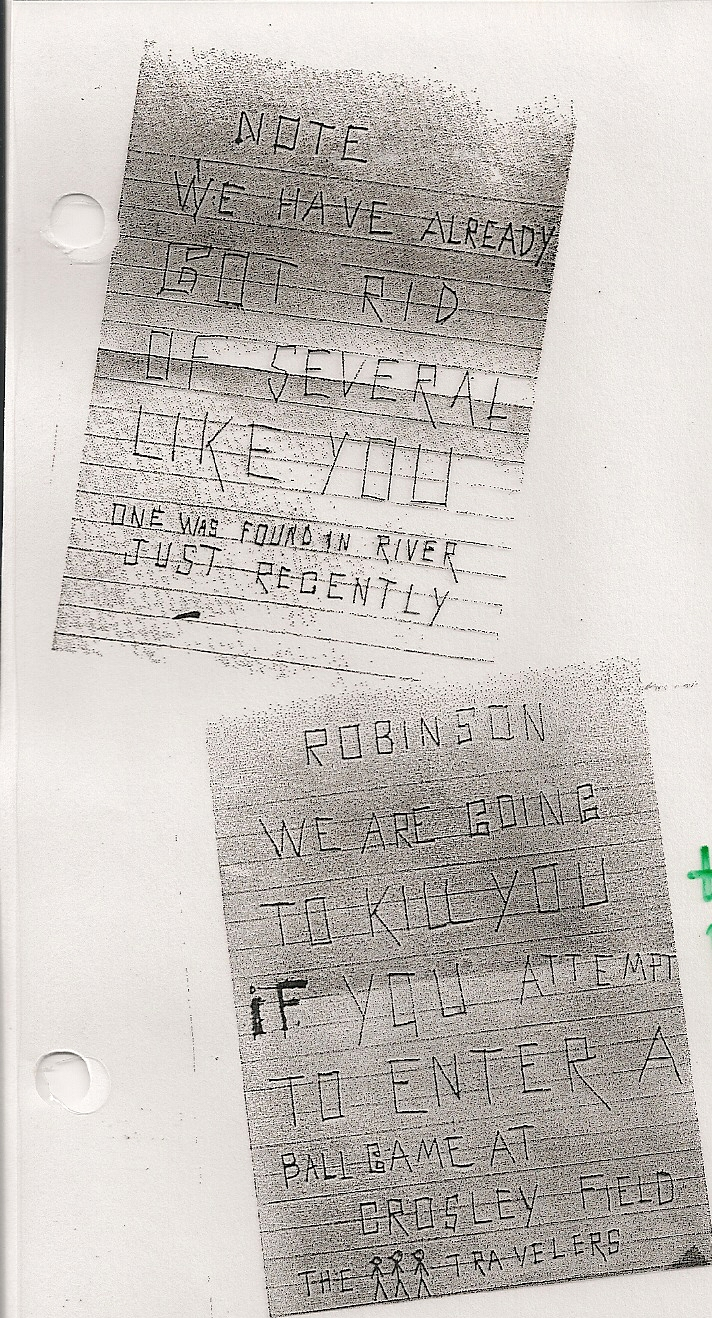 NOTE
WE HAVE ALREADY
GOT RID
OF SEVERAL
LIKE YOU
ONE WAS FOUND IN RIVER
JUST RECENTLY
ROBINSON
WE ARE GOING
TO KILL YOU
IF YOU ATTEMPT
TO ENTER A
BALL GAME AT
CROSLEY FIELD
THE TRAVELERS